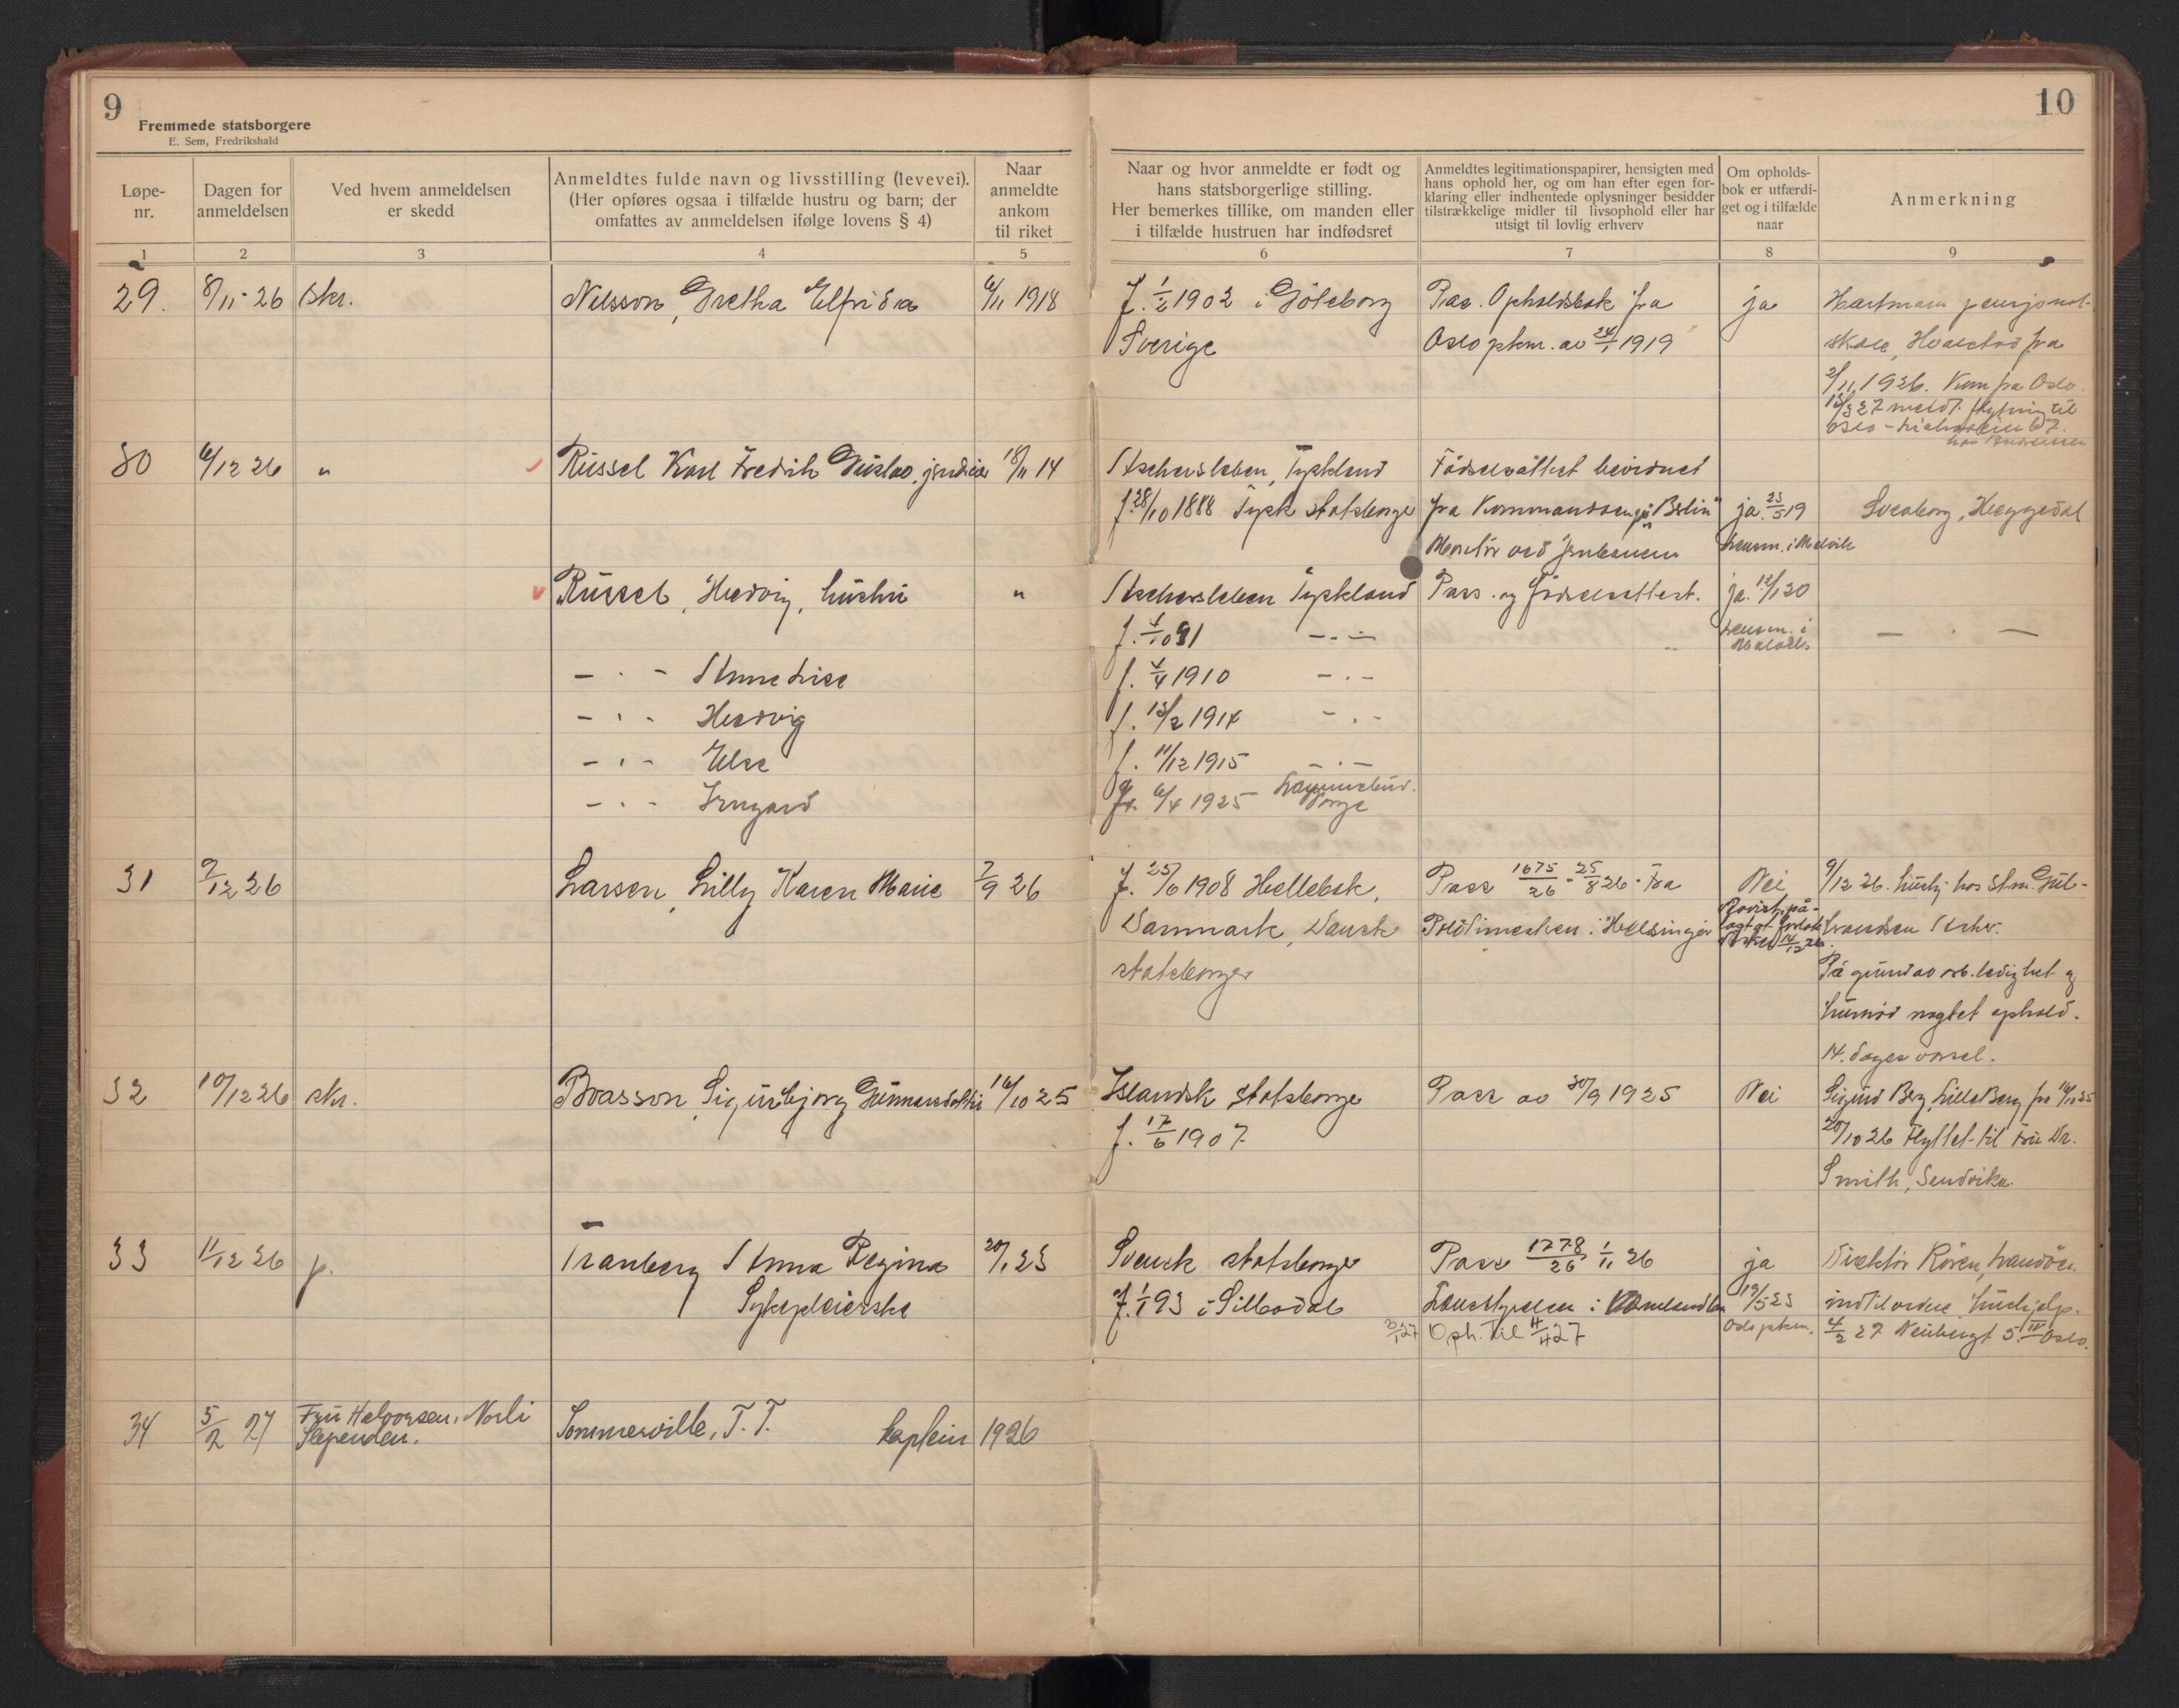 9
Fremmede statsborgere
E. Sem, Fredrikshald
Løpe-
nr.
Dagen for
anmeldelsen
Ved hvem anmeldelsen
er skedd
Anmeldtes fulde navn og livsstilling (levevei).
(Her opføres ogsaa i tilfælde hustru og barn; der
omfattes av anmeldelsen ifølge lovens § 4)
Naar
anmeldte
ankom
til riket
1 2 3 4 5
10
Naar og hvor anmeldte er født og
hans statsborgerlige stilling.
Her bemerkes tillike, om manden eller
i tilfælde hustruen har indfødsret
Anmeldtes legitimationspapirer, hensigten med
hans ophold her, og om han efter egen for-
klaring eller indhentede oplysninger besidder
tilstrækkelige midler til livsophold eller har
utsigt til lovlig erhverv
Om opholds-
bok er utfærdi-
get og i tilfælde
naar
Anmerkning
6 7 8 9
29. 8/11-26 skr. Nilsson, Gretha Elfrida 6/11 1918
f. 1/2 1902 i Göteborg
Sverige
Pas. Opholdsbok fra
Oslo pkm. av 24/1 1919
ja
Hartmann pensjonat-
skole, Hvalstad fra
2/11 1926. Kom fra Oslo.
meldt flytning til
Oslo
30 6/12 26 " Russel Karl Fredrik Gustav, 18/11 14
Aschersleben, Tyskland
f. 28/10 1888 Tysk statsborger
Fødselsattest bevidnet
fra Kommandogen på Berlin
Montør ved jernbanen
ja 23/5 19
Lensm. i Malvik
Sveaborg, Heggedal
Russel, Hedvig, hustru "
Aschersleben Tyskland
f. 4/10 91 — . —
Pass og fødselsattest.
ja. 12/1 20
Lensm. i
Malvik
— . —
— . — Anne Lise f. 4/4 1910 — . —
— . — Hedvig f. 13/2 1914 — . —
— . — Else f. 11/12 1915 — . —
— . — Irmgard f. 6/4 1925
Norge
31 7/12 26 Larsen, Lilly Karen Marie 7/9 26
f. 25/6 1908 Hellebæk,
Danmark, Dansk
statsborger
Pass 1675/26 - 25/8 26 - fra
Politimesteren i Helsingør
Nei
9/12 26. hushj. hos Stm. Gul-
brandsen Asker.
På grund av arb.ledighet og
husnød nægtet ophold.
14. dages varsel.
32 10/12 26 skr. Brasson, Sigurbjorg Gunnarsdottir 16/10 25
Islandsk statsborger
f. 17/6 1907
Pass av 30/9 1925
Nei
Sigurd Berg, Lille Berg fra 16/10 25
20/10 26 Flyttet til Fru Dr.
Smith, Sandvika
33 11/12 26 p. Tranberg Anna Regina 20/1 23
Sykepleierske
Svensk statsborger
f. 1/1 93 i Silbodal
Pass 1778/26 1/11 26
Länsstyrelsen i Värmlands län
3/1 27 Oph. til 11/4 27
ja
19/5 23
Oslo pkm.
Direktør Roren, Landøen
indtil videre hushjelp.
4/2 27 Neubergt 5 IV Oslo.
34 5/2 27 Fru Halvorsen, Norli
Slependen.
Sommerville, T. T. kaptein 1926